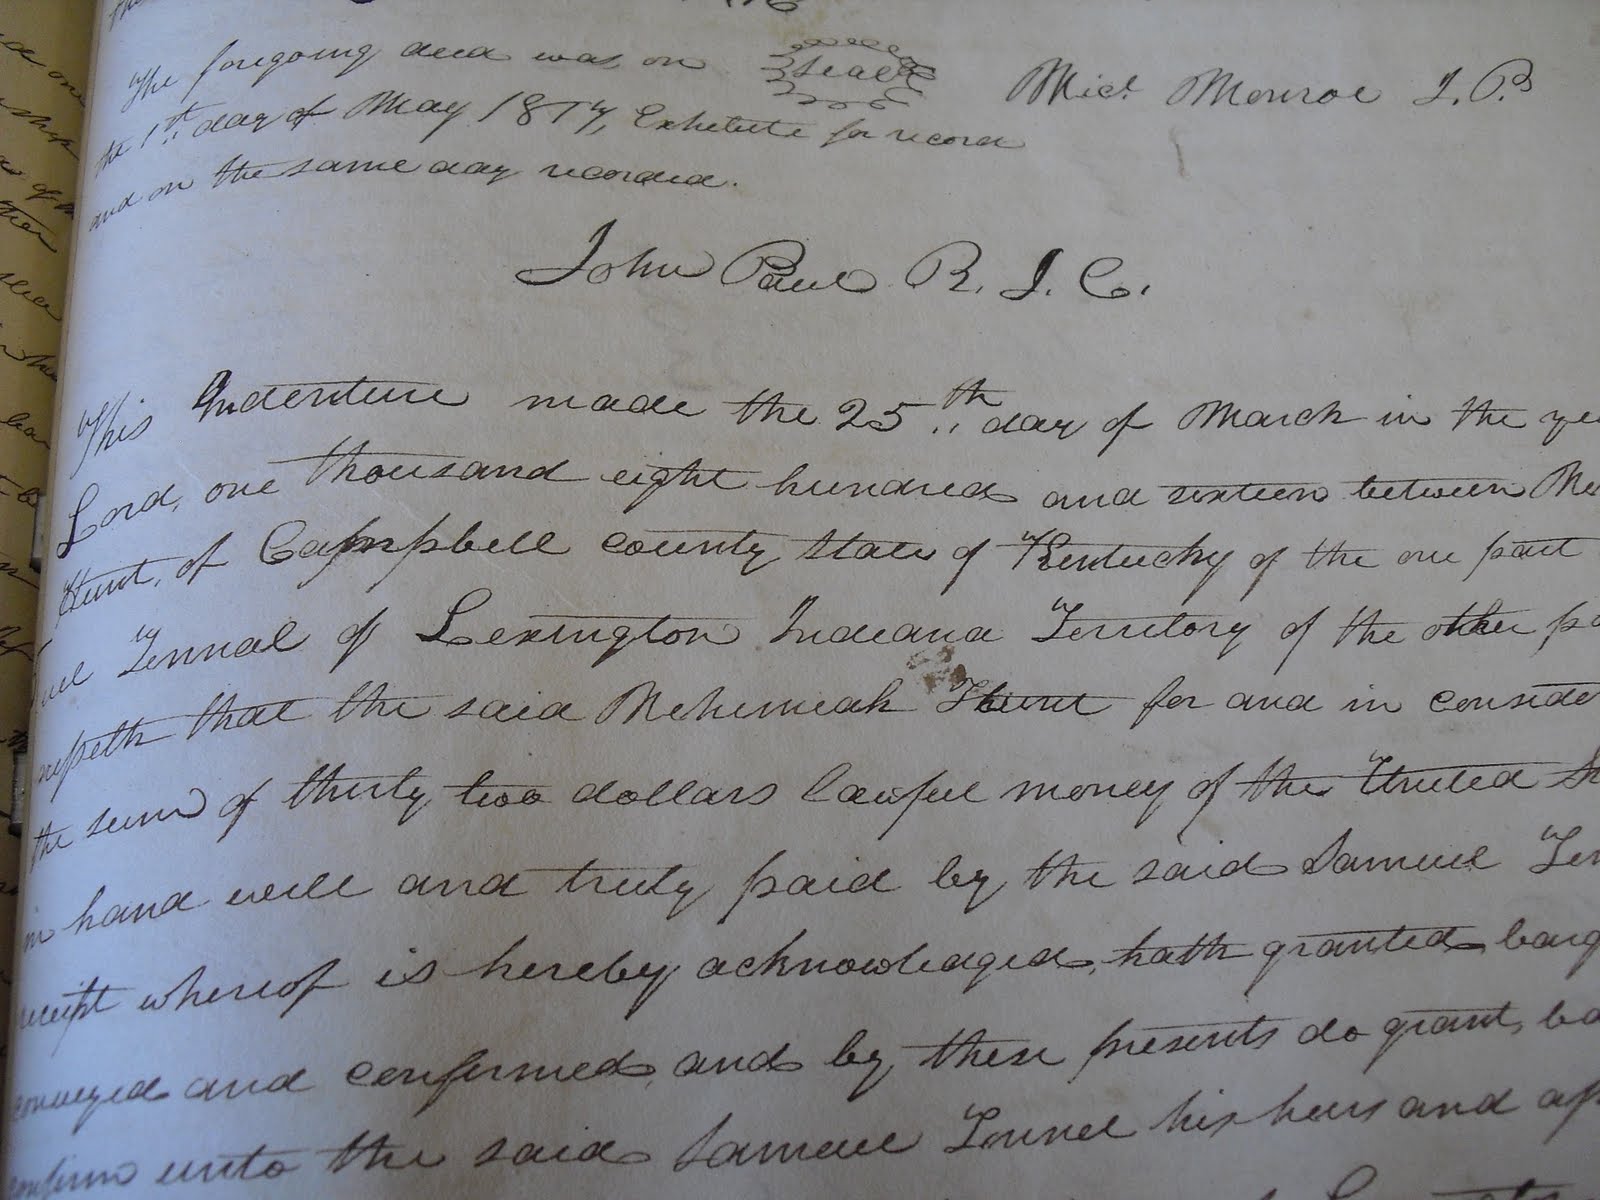 The foregoing deed was on Seal Mict Monroe J.P.
the 1th day of May 1817, Exhibite for record
and on the same day recorded.
John Paul R. J. C.
This Indenture made the 25th day of March in the ye
Lord, one thousand eight hundred and sixteen between Ne
Hunt, of Campbell county state of Kentucky of the one part
uel Tennal of Lexington Indeana Territory of the other pa
nesseth that the said Nehemiah Hunt for and in conside
the sum of thirty two dollars lawful money of the United St
in hand well and truly paid by the said Samuel Ten
receipt whereof is hereby acknowledged, hath granted barg
conveyed and confirmed, and by these presents do grant, ba
confirm unto the said Samuel Tennel his heirs and ass